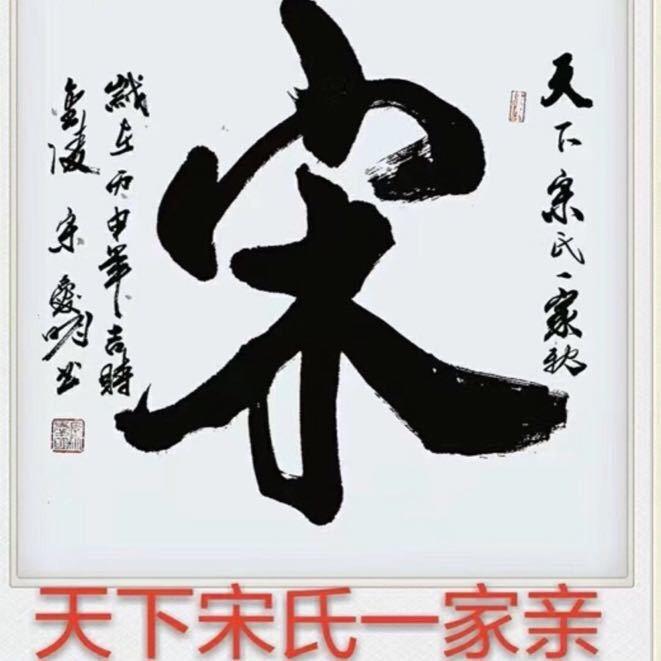 天下宋氏一家親
宋
歲在丙申年吉時
金陵宋愛明书
天下宋氏一家亲